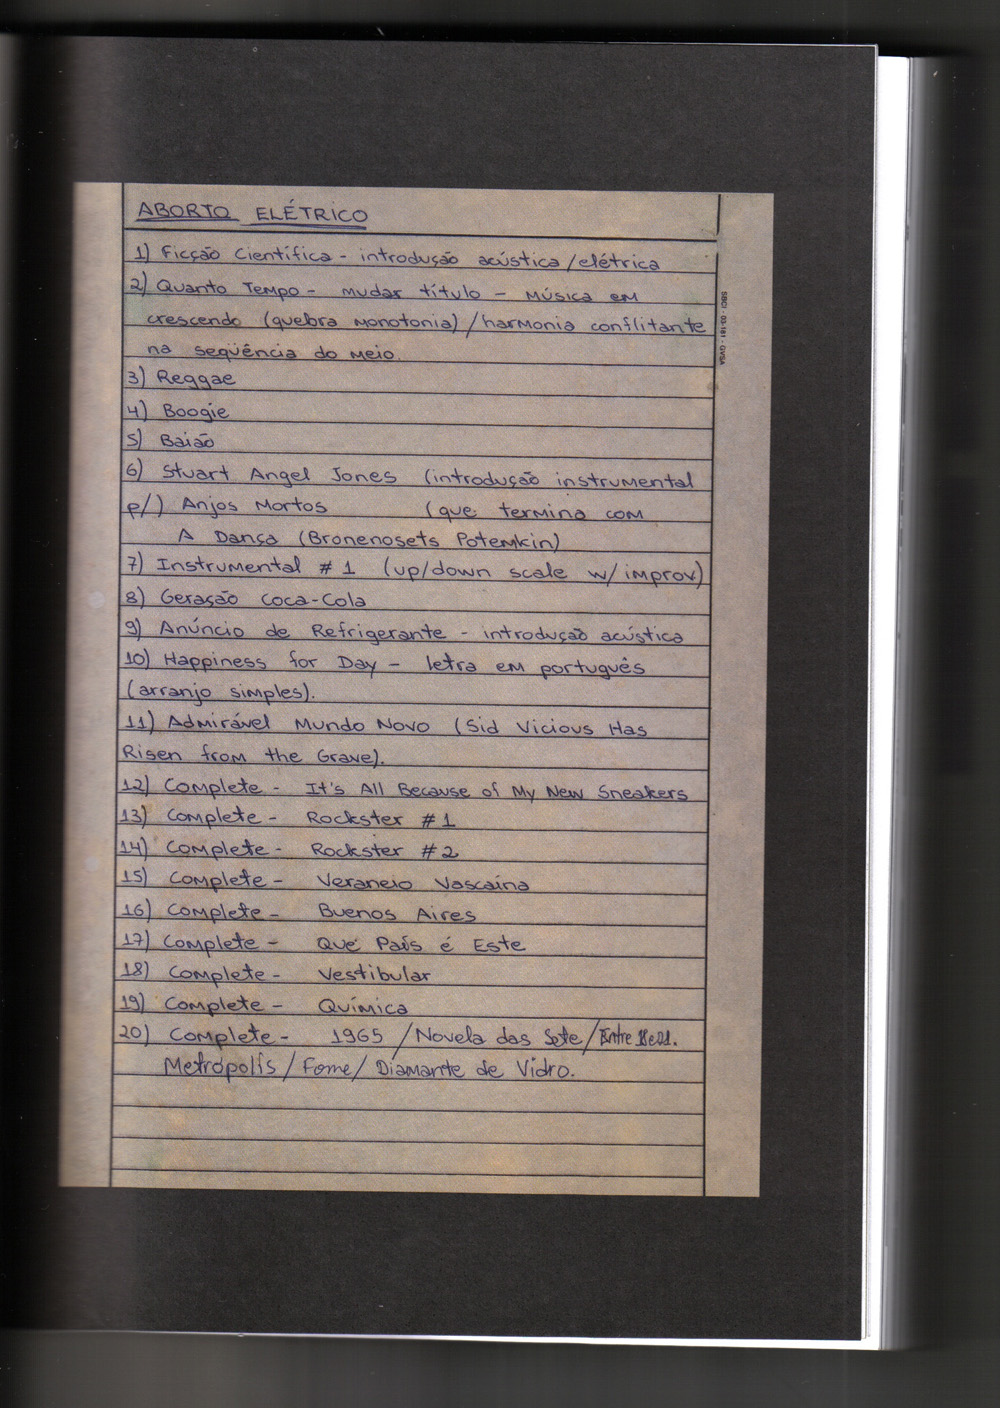 ABORTO ELÉTRICO
1) Ficção Científica - introdução acústica/elétrica
2) Quanto Tempo - mudar título - música em
crescendo (quebra monotonia) / harmonia conflitante
na seqüência do meio.
3) Reggae
4) Boogie
5) Baião
6) Stuart Angel Jones (introdução instrumental
p/) Anjos Mortos (que termina com
A Dança (Bronenosets Potemkin)
7) Instrumental # 1 (up/down scale w/ improv)
8) Geração Coca-Cola
9) Anúncio de Refrigerante - introdução acústica
10) Happiness for Day - letra em português
(arranjo simples).
11) Admirável Mundo Novo (Sid Vicious Has
Risen from the Grave).
12) Complete - It's All Because of My New Sneakers
13) Complete - Rockster # 1
14) Complete - Rockster # 2
15) Complete - Veraneio Vascaína
16) Complete - Buenos Aires
17) Complete - Que País é Este
18) Complete - Vestibular
19) Complete - Química
20) Complete - 1965 / Novela das Sete / Entre 18 e 21.
Metrópolis / Fome / Diamante de Vidro.
SBCI - 03-181 - GVSA